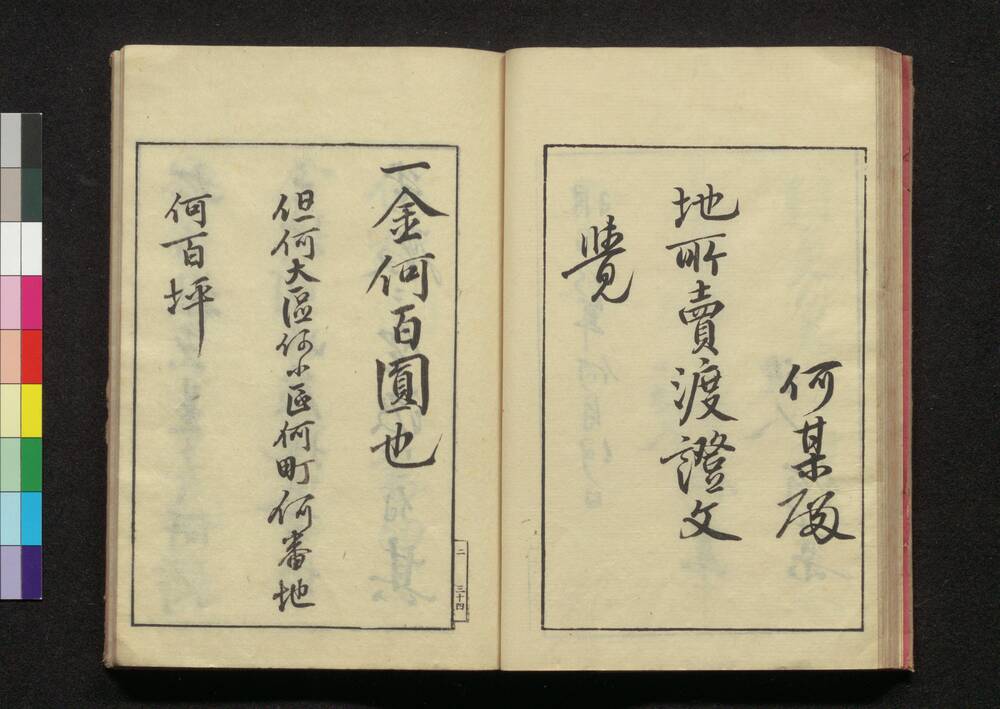 何某殿
地所賣渡證文
覺
一金何百圓也
但何大區何小區何町何番地
何百坪
二 三十四